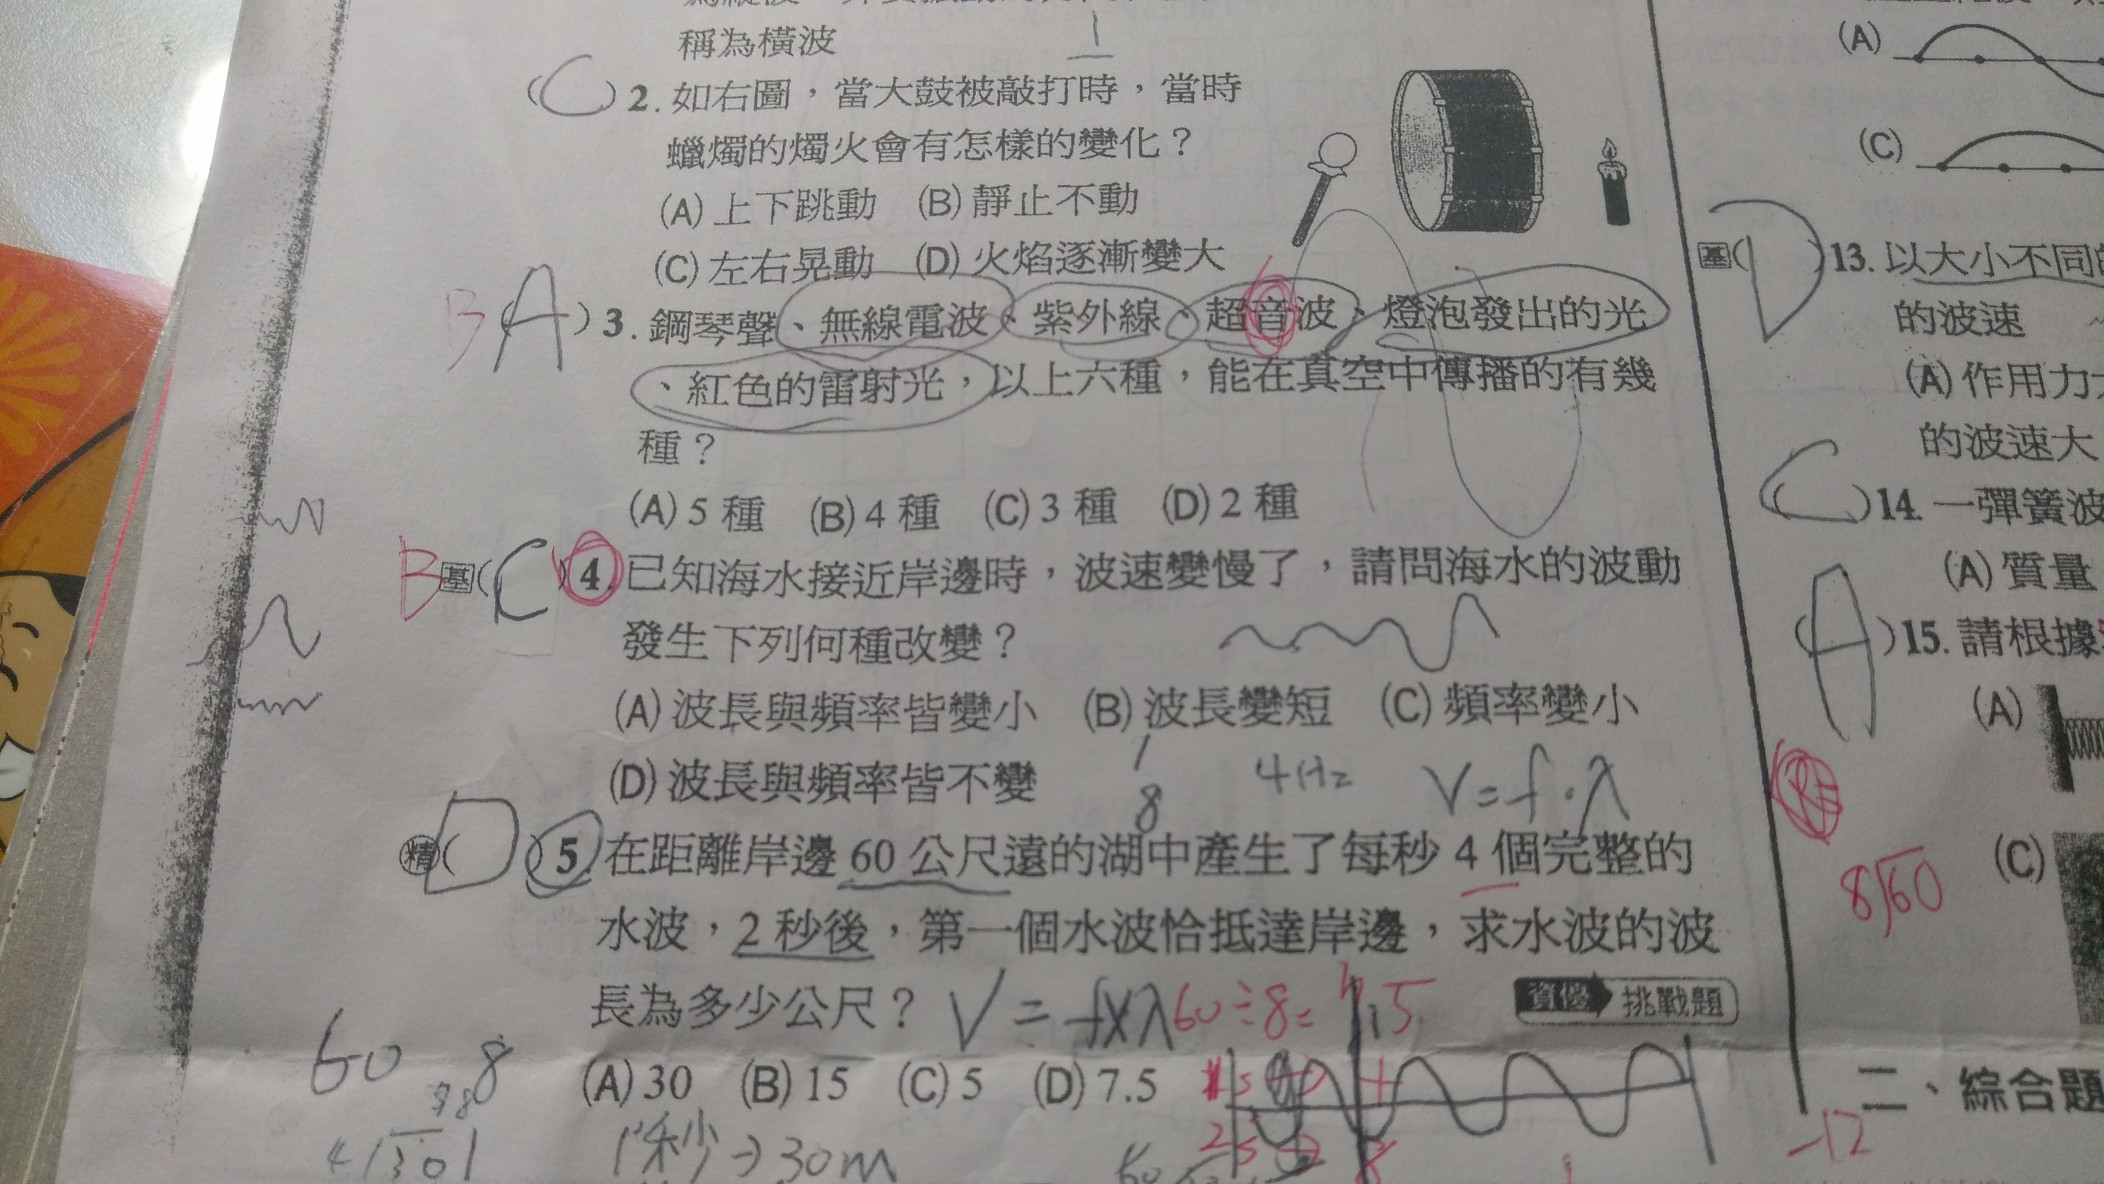 稱為橫波
1
(C) 2. 如右圖，當大鼓被敲打時，當時
蠟燭的燭火會有怎樣的變化？
(A) 上下跳動 (B) 靜止不動
(C) 左右晃動 (D) 火焰逐漸變大
B (A) 3. 鋼琴聲、無線電波、紫外線、超音波、燈泡發出的光
、紅色的雷射光，以上六種，能在真空中傳播的有幾
種？
(A) 5 種 (B) 4 種 (C) 3 種 (D) 2 種
B 基 (C) 4. 已知海水接近岸邊時，波速變慢了，請問海水的波動
發生下列何種改變？
(A) 波長與頻率皆變小 (B) 波長變短 (C) 頻率變小
(D) 波長與頻率皆不變
1
8
4Hz V=f·λ
精 (D) 5. 在距離岸邊 60 公尺遠的湖中產生了每秒 4 個完整的
水波，2 秒後，第一個水波恰抵達岸邊，求水波的波
長為多少公尺？ V = f×λ 60÷8=7.5
資優 挑戰題
(A) 30 (B) 15 (C) 5 (D) 7.5
60 8
1秒→30m
(A)
(C)
基 (D) 13. 以大小不同的
的波速
(A) 作用力
的波速大
(C) 14. 一彈簧波
(A) 質量
(A) 15. 請根據
(A)
8)60
(C)
二、綜合題
-12